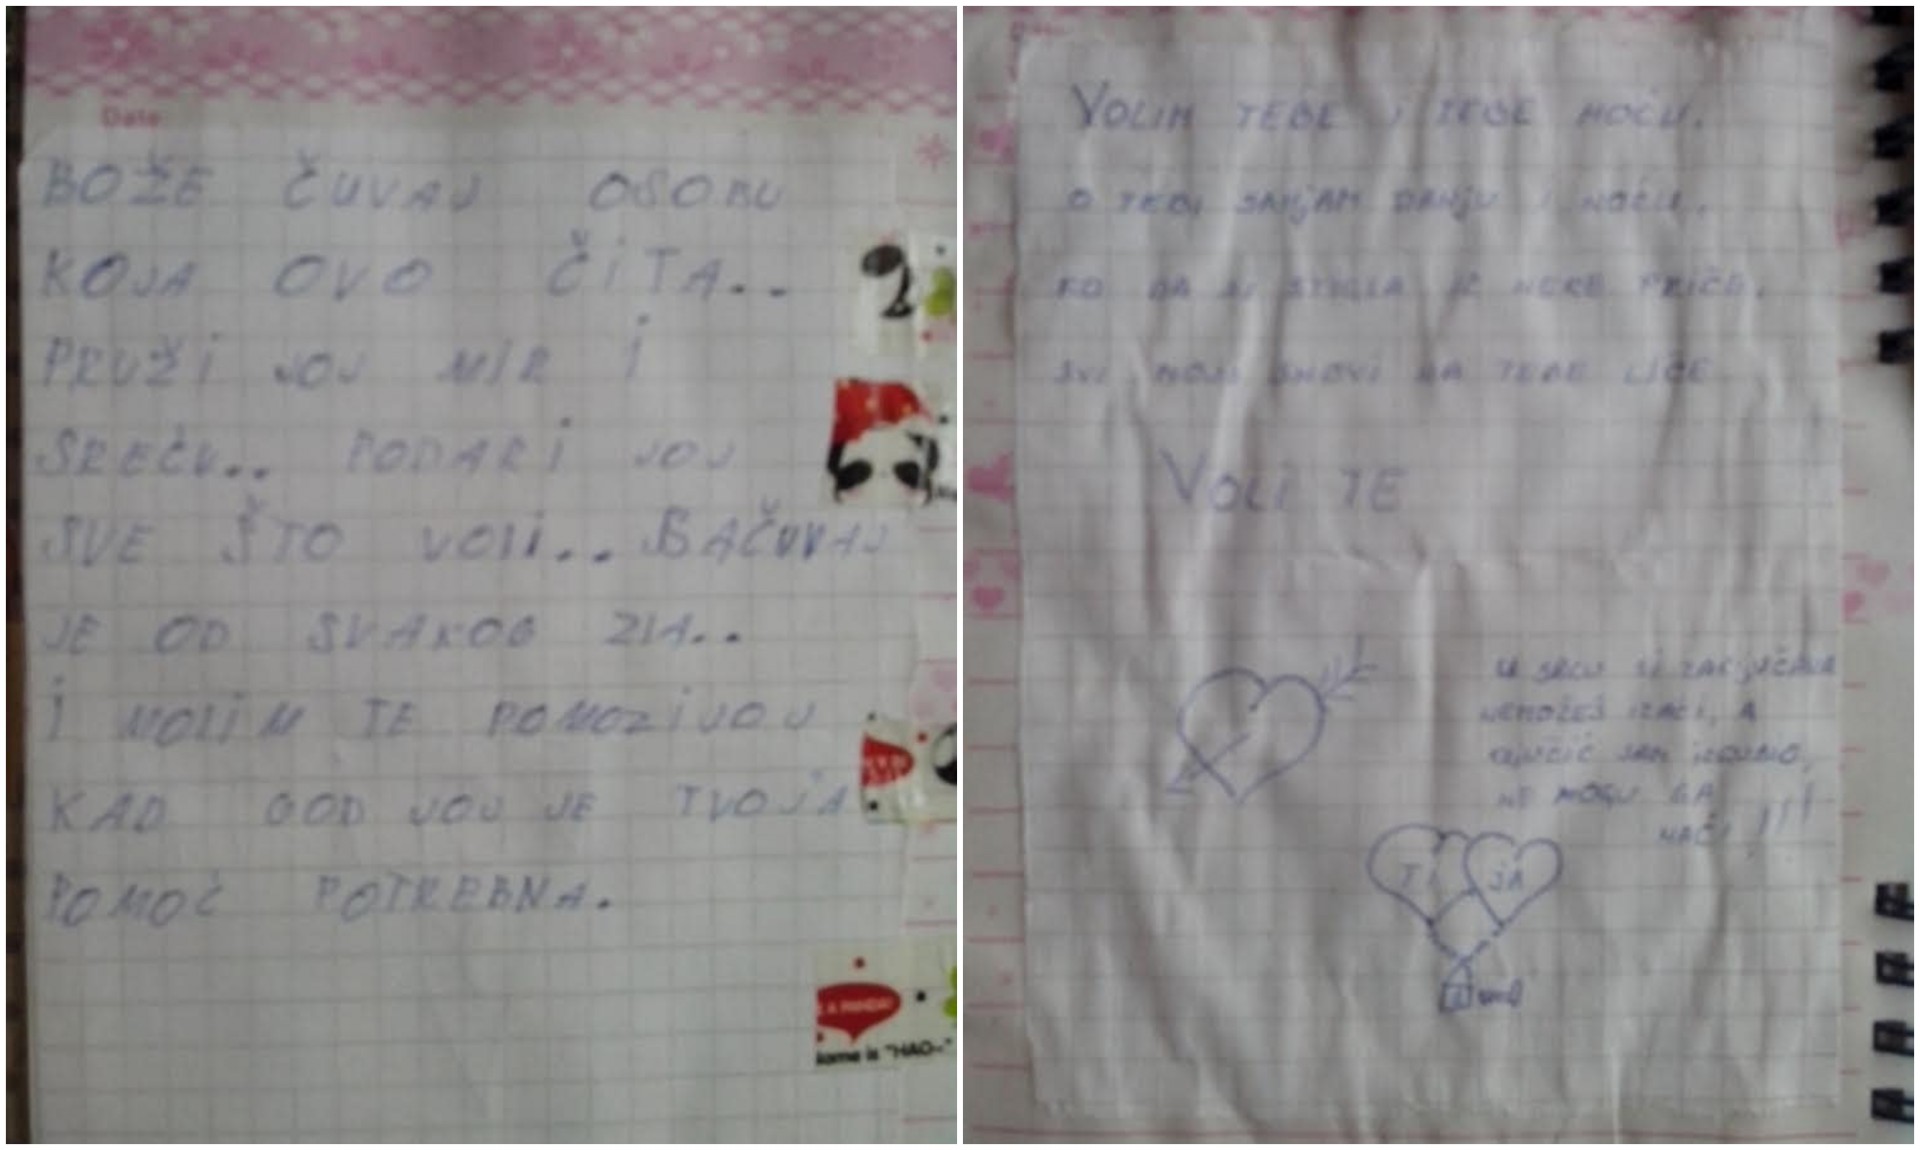 Date
BOŽE ČUVAJ OSOBU
KOJA OVO ČITA..
PRUŽI JOJ MIR I
SREĆU.. PODARI JOJ
SVE ŠTO VOLI.. SAČUVAJ
JE OD SVAKOG ZLA..
I MOLIM TE POMOZI JOJ
KAD GOD JOJ JE TVOJA
POMOĆ POTREBNA.
2
A PANDA!
name is "HAO~"
VOLIM TEBE I TEBE HOĆU.
O TEBI SANJAM DANJU I NOĆU.
KO DA SI STIGLA IZ NEKE PRIČE,
SVI MOJI SNOVI NA TEBE LIČE
VOLI TE
U SRCU SI ZAKLJUČANA
NEMOŽEŠ IZAĆI, A
KLJUČIĆ SAM IZGUBIO,
NE MOGU GA
NAĆI !!!
TI JA